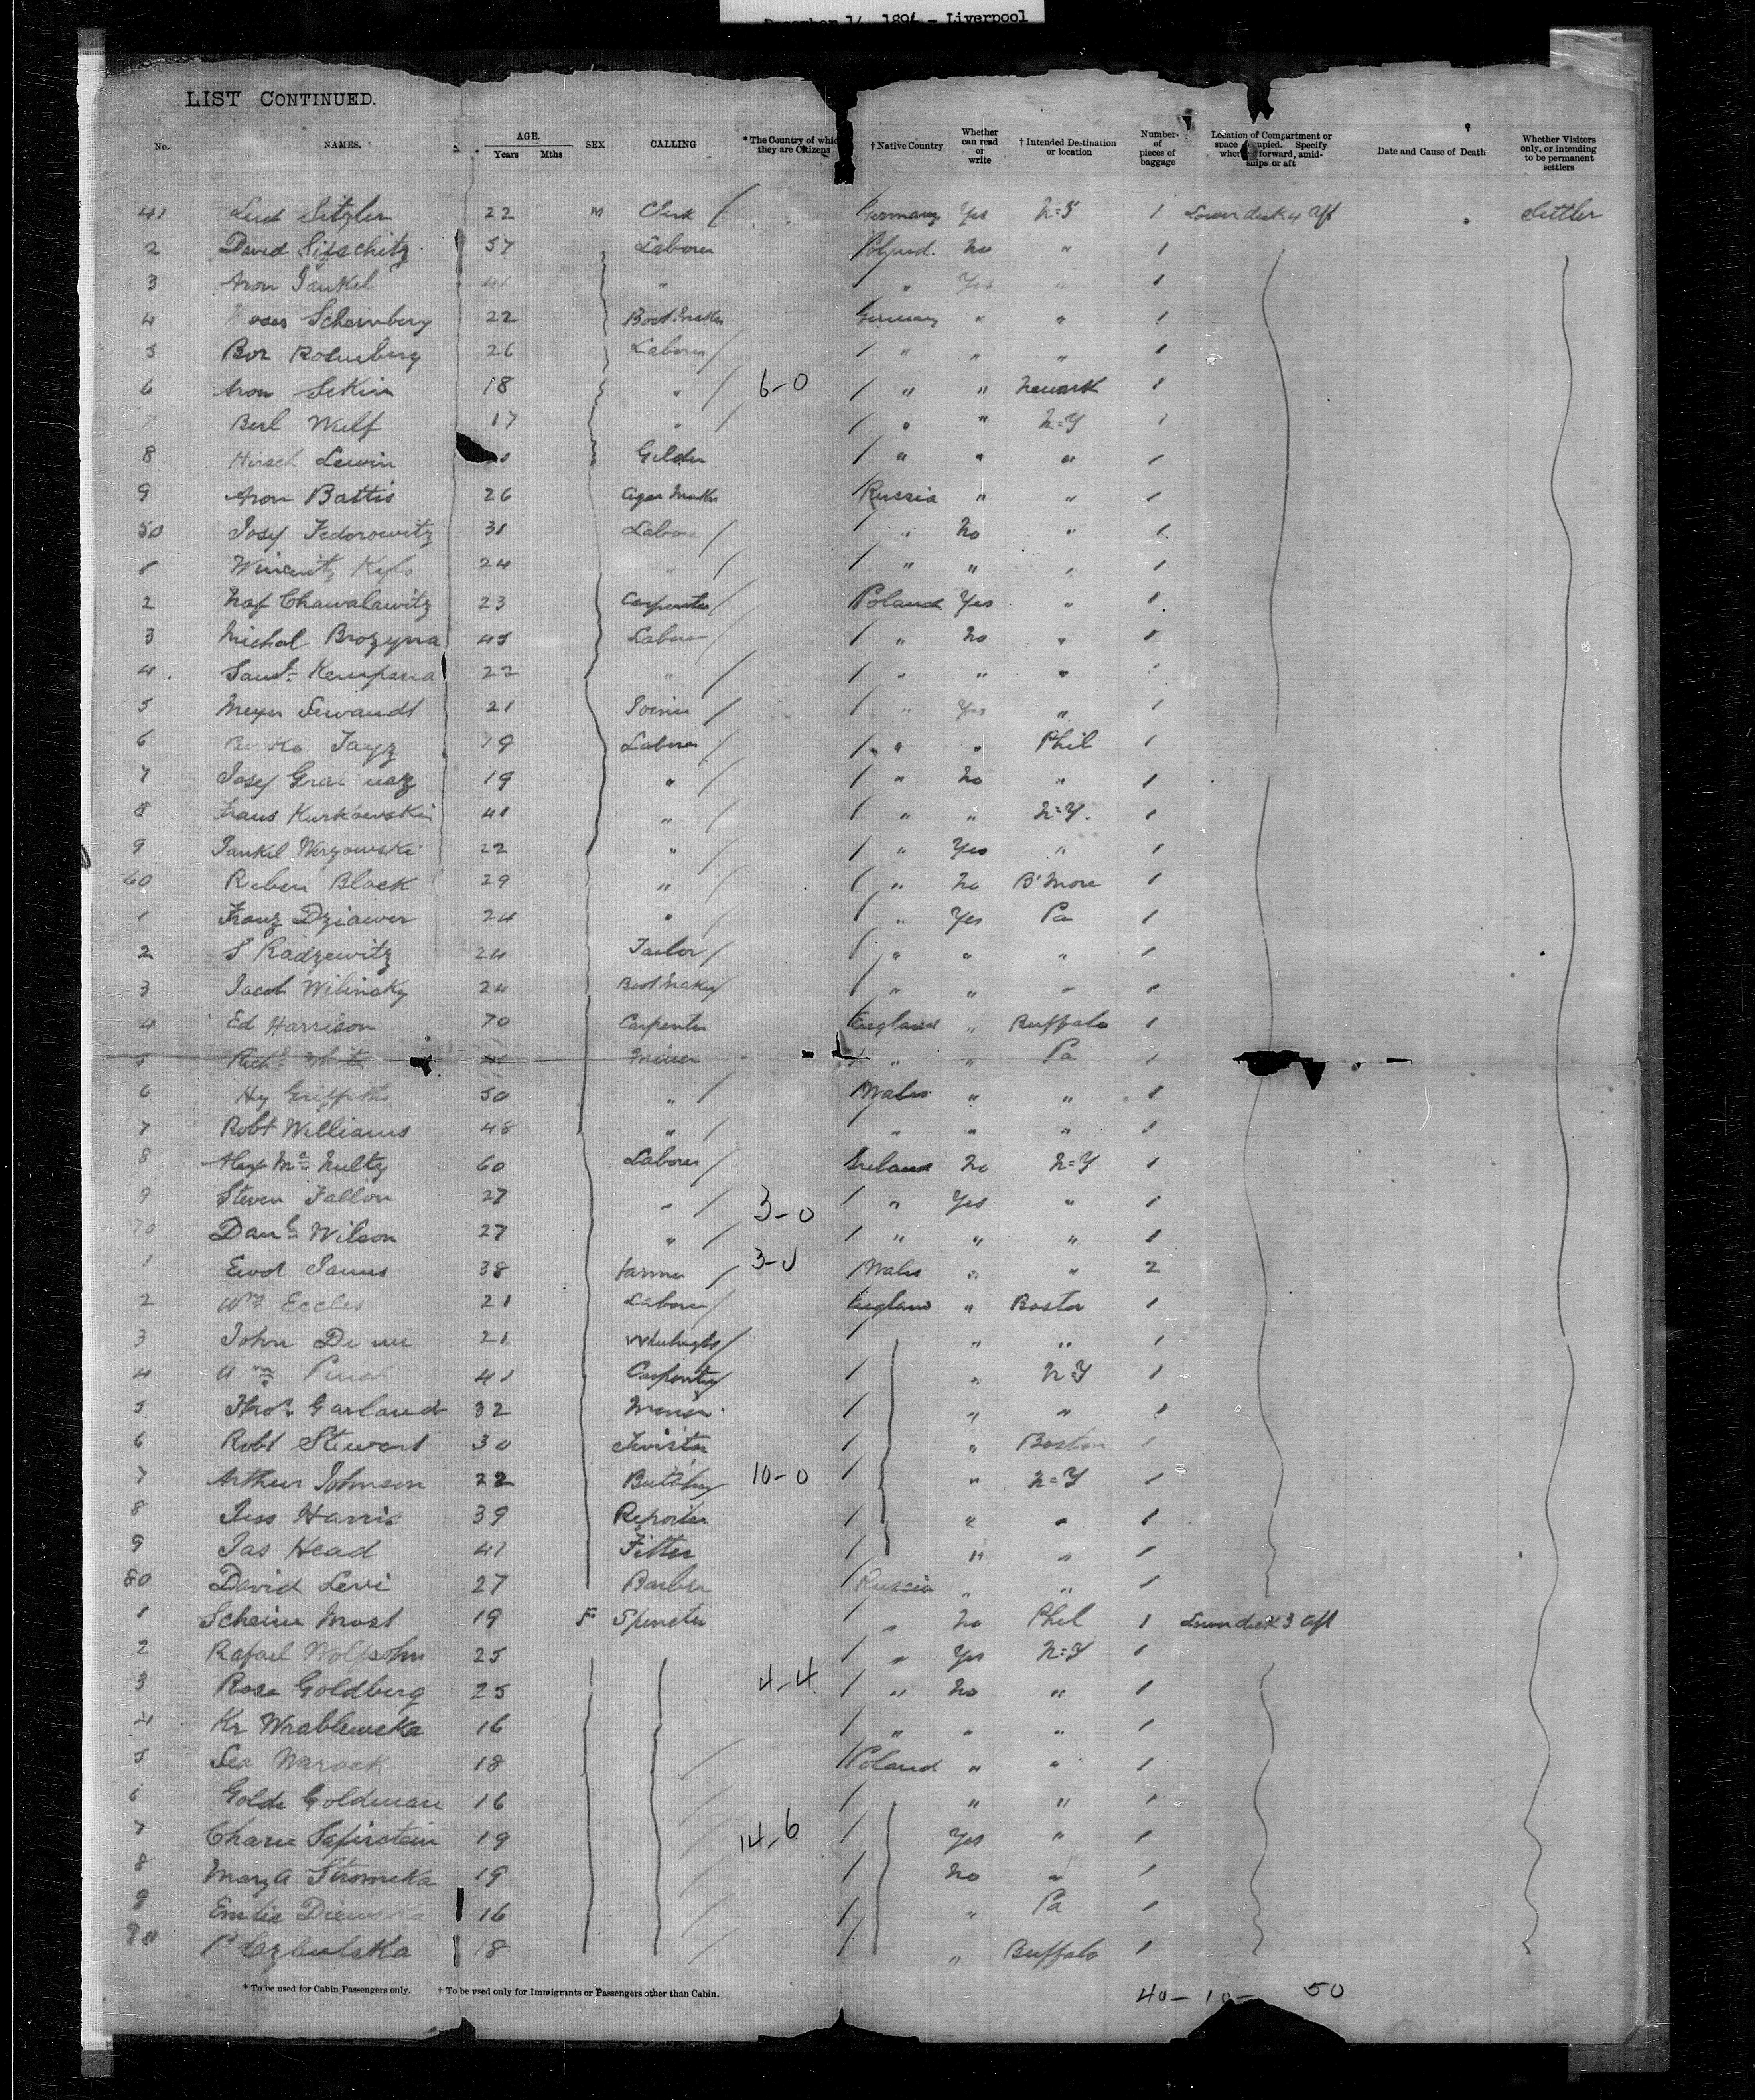 December 14, 1894 - Liverpool
LIST CONTINUED.
No. NAMES. AGE. Years Mths SEX CALLING * The Country of which they are Citizens † Native Country Whether can read or write † Intended Destination or location Number of pieces of baggage Location of Compartment or space occupied. Specify whether forward, amidships or aft Date and Cause of Death Whether Visitors only, or intending to be permanent settlers
41 22 m Clerk / Germany Yes N=Y 1 Lower deck 4 Aft Settler
2 David Lipschitz 57 Laborer Poland. No " 1
3 Aron Jankel 41 " / " Yes " 1
4 Moses Scheinberg 22 Boot Maker Germany " " 1
5 Ber Rosenberg 26 Laborer / / " " " 1
6 Aron Sekin 18 " / 6-0 / " " Newark 1
7 Berl Wulf 17 " / / " " N=Y 1
8 Hirsch Lewin Gilder / " " " 1
9 Aron Battis 26 Cigar Maker Russia " " 1
50 Josef Fedorowitz 31 Laborer / / " No " 1
1 24 " / / " " " 1
2 Chawalawitz 23 Carpenter / Poland Yes " 1
3 Michal Brozyna 45 Laborer / / " No " 1
4 22 " / / " " " 1
5 Meyer 21 Joiner / / " Yes " 1
6 Berko Jayz 19 Laborer / / " " Phil 1
7 Josef 19 " / / " No " 1
8 Frans Kurkowski 41 " / / " " N=Y. 1
9 Jankel Werzowski 22 " / / " Yes " 1
60 Reben Black 29 " / / " No B'More 1
1 Franz Dziawer 24 " / / " Yes Pa 1
2 S Radzewitz 24 Tailor / / " " " 1
3 Jacob Wilinsky 24 Boot Maker / / " " " 1
4 Ed Harrison 70 Carpenter England " Buffalo 1
5 Richd White Miner / " " Pa 1
6 Hy Griffiths 50 " / Wales " " 1
7 Robt Williams 48 " / / " " " 1
8 Alex Mc Nulty 60 Laborer / Ireland No N=Y 1
9 Steven Fallon 27 " / 3-0 / " Yes " 1
70 Danl Wilson 27 " / / " " " 1
1 Evod James 38 Farmer / 3-0 Wales " " 2
2 Wm Eccles 21 Laborer / England " Boston 1
3 John 21 / / " " 1
4 Wm 41 Carpenter / / " N=Y 1
5 Thos Garland 32 Miner / " " 1
6 Robt Stewart 30 Twister / " Boston 1
7 Arthur Johnson 22 Butcher 10-0 / " N=Y 1
8 Jess Harris 39 Reporter / " " 1
9 Jas Head 41 Fitter / " " 1
80 David Levi 27 Barber / Russia " " 1
1 Scheine Most 19 F Spinster / " No Phil 1 Lower deck 3 Aft
2 Rafael Wolfsohn 25 / " Yes N=Y 1
3 Rosa Goldberg 25 4-4 / " No " 1
4 Kr Wrablewska 16 / " " " 1
5 Lea Warack 18 / / Poland " " 1
6 Golde Goldman 16 / / " " 1
7 Charie Safirstein 19 / 14-6 / Yes " 1
8 Mary A Stromska 19 / / No " 1
9 Emilia 16 / / " Pa 1
90 P Czbulska 18 / / " Buffalo 1
* To be used for Cabin Passengers only. † To be used only for Immigrants or Passengers other than Cabin.
40 - 10 - 50